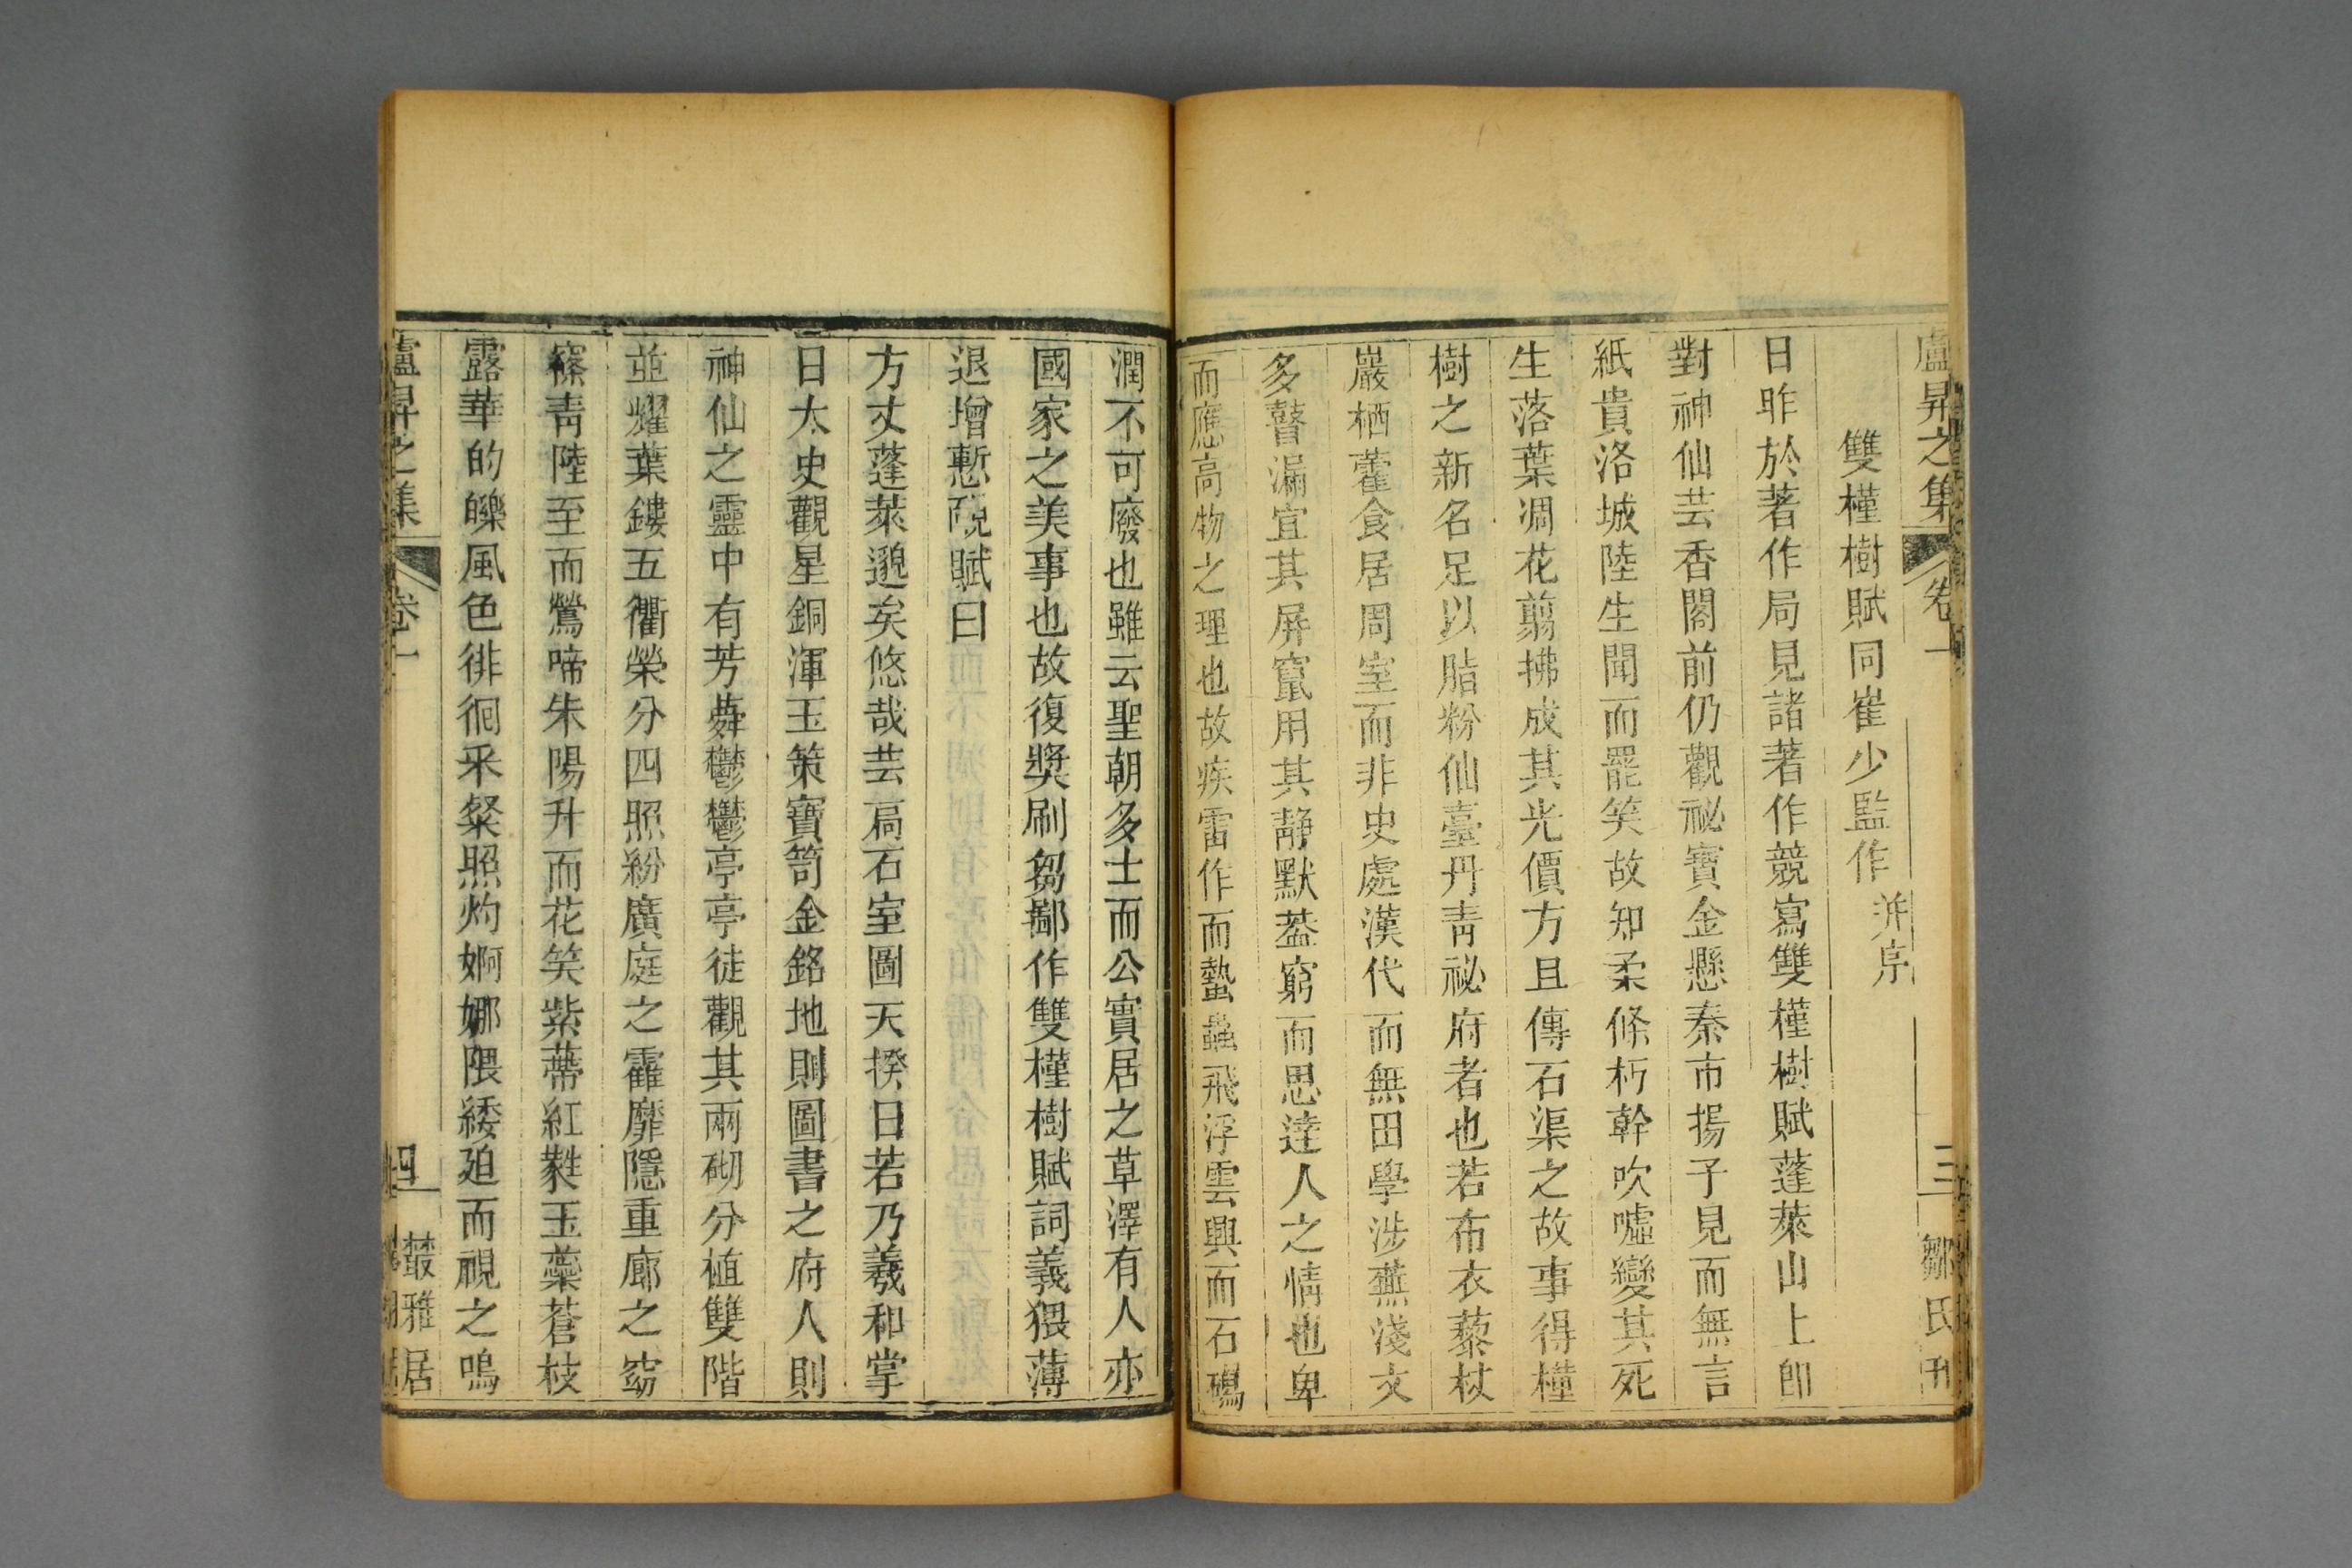 盧昇之集 卷一 三 鄒氏刊
雙槿樹賦同崔少監作 并序
日昨於著作局見諸著作競寫雙槿樹賦蓬萊山上卽
對神仙芸香閣前仍觀祕寶金懸秦市揚子見而無言
紙貴洛城陸生聞而罷笑故知柔條朽幹吹噓變其死
生落葉凋花剪拂成其光價方且傳石渠之故事得槿
樹之新名足以脂粉仙臺丹青祕府者也若布衣藜杖
巖栖藿食居周室而非史處漢代而無田學涉蕪淺文
多瞽漏宜其屏竄用其靜默葢窮而思達人之情也卑
而應高物之理也故疾雷作而蟄蟲飛浮雲興而石礀
潤不可廢也雖云聖朝多士而公實居之草澤有人亦
國家之美事也故復奬刷芻鄙作雙槿樹賦詞義猥薄
退增慙赧賦曰
方丈蓬萊邈矣悠哉芸扃石室圖天揆日若乃羲和掌
日太史觀星銅渾玉策寶笥金銘地則圖書之府人則
神仙之靈中有芳蕣鬱鬱亭亭徒觀其兩砌分植雙階
並耀葉鏤五衢榮分四照紛廣庭之霍靡隱重廊之窈
窱青陸至而鶯啼朱陽升而花笑紫蔕紅蕤玉蘂蒼枝
露華的皪風色徘徊采粲照灼婀娜隈緌廹而視之鳴
盧昇之集 卷一 四 叢雅居